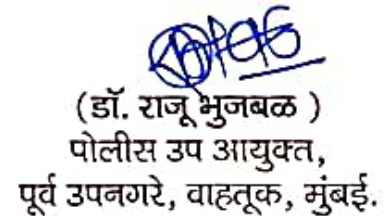 (डॉ. राजू भुजबळ )
पोलीस उप आयुक्त,
पूर्व उपनगरे, वाहतूक, मुंबई.